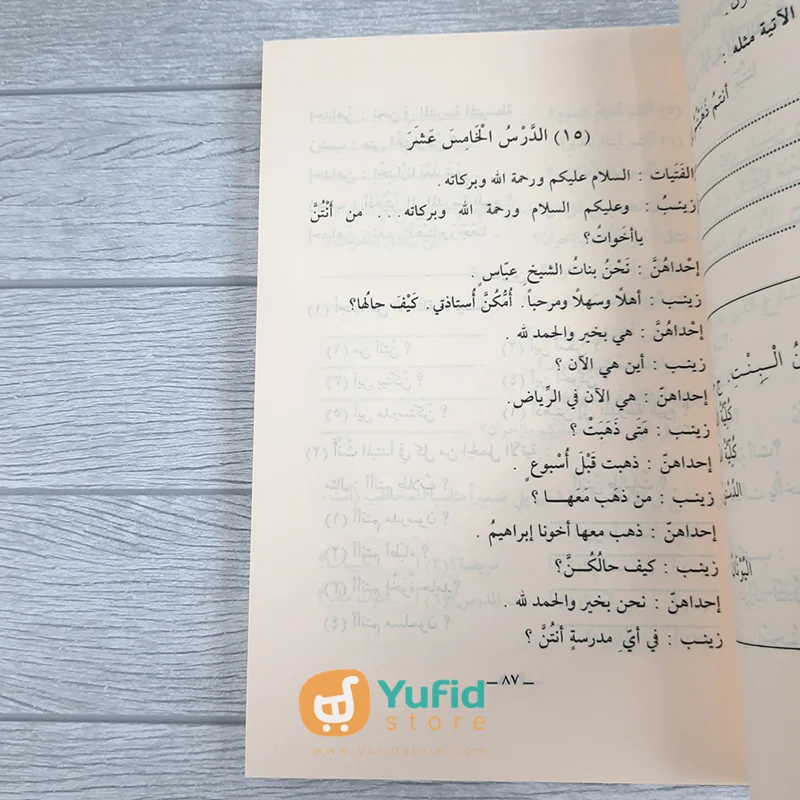 (١٥) الدَّرْسُ الْخَامِسَ عَشَرَ
الفَتَيات : السلام عليكم ورحمة الله وبركاته .
زينبُ : وعليكم السلام ورحمة الله وبركاته... من أَنْتُنَّ
ياأخَواتُ؟
إحْداهُنَّ : نَحْنُ بناتُ الشيخِ عبّاسٍ .
زينب : أهلاً وسهلاً ومرحباً. أُمُّكُنَّ أُستاذتي. كَيْفَ حالُها؟
إحْداهُنَّ : هي بخير والحمد لله .
زينب : أين هي الآن ؟
إحداهنّ : هي الآن في الرِّياض.
زينب : مَتَى ذَهَبَتْ ؟
إحداهنّ : ذهبت قَبْلَ أُسْبوعٍ .
زينب : من ذهَب مَعَهـــا ؟
إحداهنّ : ذهب معها أخونا إبراهيمُ .
زينب : كيف حالُكُـــنَّ؟
إحداهنّ : نحن بخير والحمد لله .
زينب : في أيِّ مدرسةٍ أنتُنَّ ؟
– ٨٧ –
Yufid
store
www.yufidstore.com
الآتية مثله :